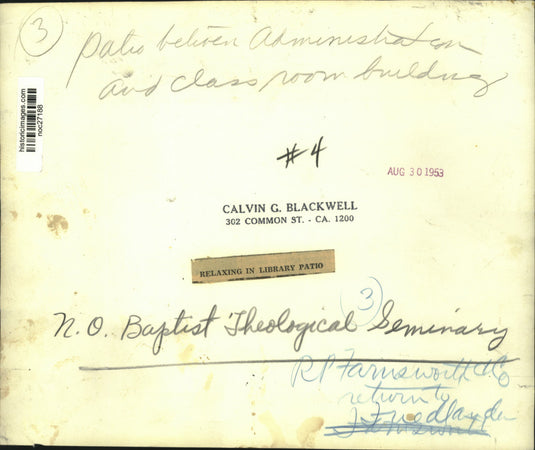 3
Patio between Administration
and class room building
historicimages.com
noc27168
#4
AUG 30 1953
CALVIN G. BLACKWELL
302 COMMON ST. - CA. 1200
RELAXING IN LIBRARY PATIO
3
N.O. Baptist Theological Seminary
RP Farnsworth & Co
return to
Friedlander